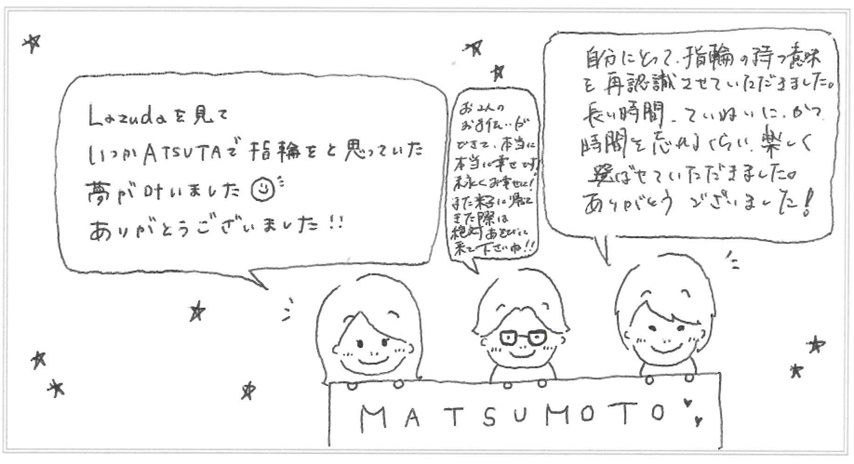 Lazudaを見て
いつかATSUTAで指輪をと思っていた
夢が叶いました
ありがとうございました!!
お2人の
お手伝いが
できて、本当に
本当に幸せです!
末永くお幸せに!
また米子に帰って
きた際は
絶対あそびに
来て下さいね!!
自分にとって、指輪の持つ意味
を再認識させていただきました。
長い時間、ていねいに、かつ
時間を忘れるくらい、楽しく
選ばせていただきました。
ありがとうございました!
MATSUMOTO